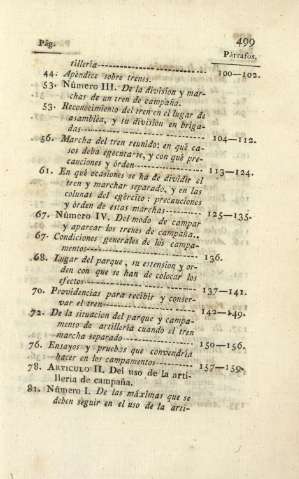 499
Pág. Párrafos.
tillería 100—102.
44. Apéndice sobre trenes.
53. Número III. De la division y mar-
chas de un tren de campaña.
53. Reconocimiento del tren en el lugar de
asamblea, y su division en briga-
das 104—112.
56. Marcha del tren reunido: en qué ca-
sos deba egecutarse, y con qué pre-
cauciones y órden 113—124.
61. En qué ocasiones se ha de dividir el
tren y marchar separado, y en las
colunas del egército: precauciones
y órden de estas marchas 125—135.
67. Número IV. Del modo de campar
y aparcar los trenes de campaña.
67. Condiciones generales de los campa-
mentos 136.
68. Lugar del parque, su estension y or-
den con que se han de colocar los
efectos 137—141.
70. Providencias para recibir y conser-
var el tren 142—149.
72. De la situacion del parque y campa-
mento de artillería cuando el tren
marcha separado 150—156.
76. Ensayos y pruebas que convendria
hacer en los campamentos 157—159.
78. ARTICULO II. Del uso de la arti-
llería de campaña.
81. Número I. De las máximas que se
deben seguir en el uso de la arti-